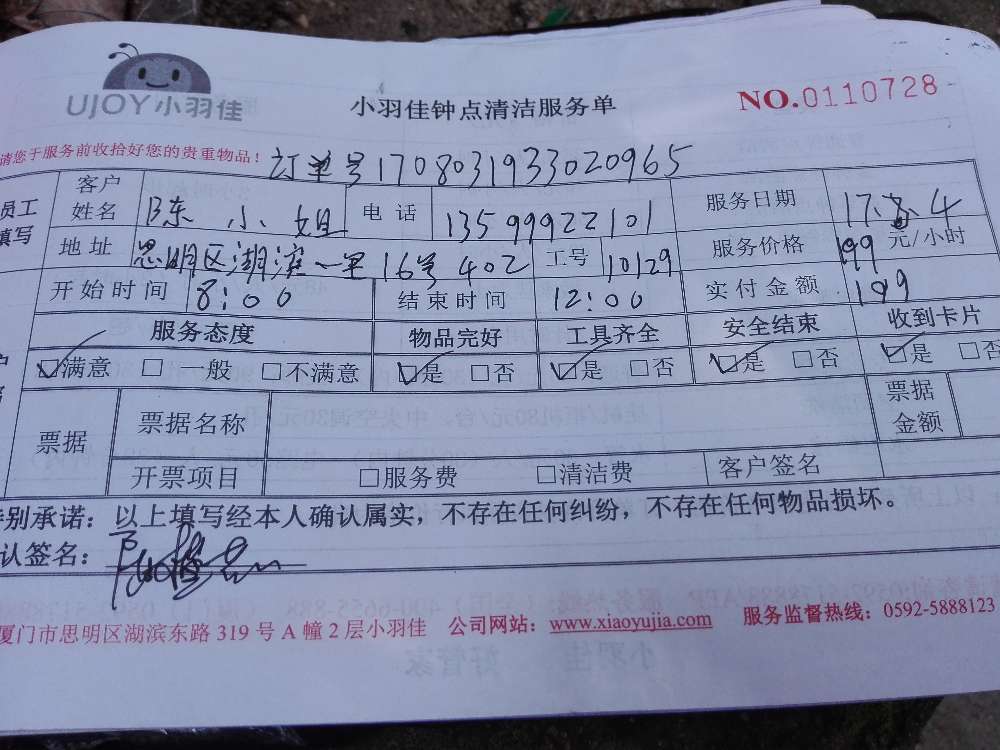 UJOY小羽佳
小羽佳钟点清洁服务单
NO.0110728
请您于服务前收拾好您的贵重物品！
订单号1708031933020965
员工填写
客户姓名 陈小姐 电话 13599922101 服务日期 17.8.4
地址 思明区湖滨一里16号402 工号 10129 服务价格 199 元/小时
开始时间 8:00 结束时间 12:00 实付金额 199
服务态度 物品完好 工具齐全 安全结束 收到卡片
☑满意 □一般 □不满意 ☑是 □否 ☑是 □否 ☑是 □否 ☑是 □否
票据 票据名称 票据金额
开票项目 □服务费 □清洁费 客户签名
特别承诺：以上填写经本人确认属实，不存在任何纠纷，不存在任何物品损坏。
认签名：
厦门市思明区湖滨东路 319 号 A 幢 2 层小羽佳 公司网站：www.xiaoyujia.com 服务监督热线：0592-5888123